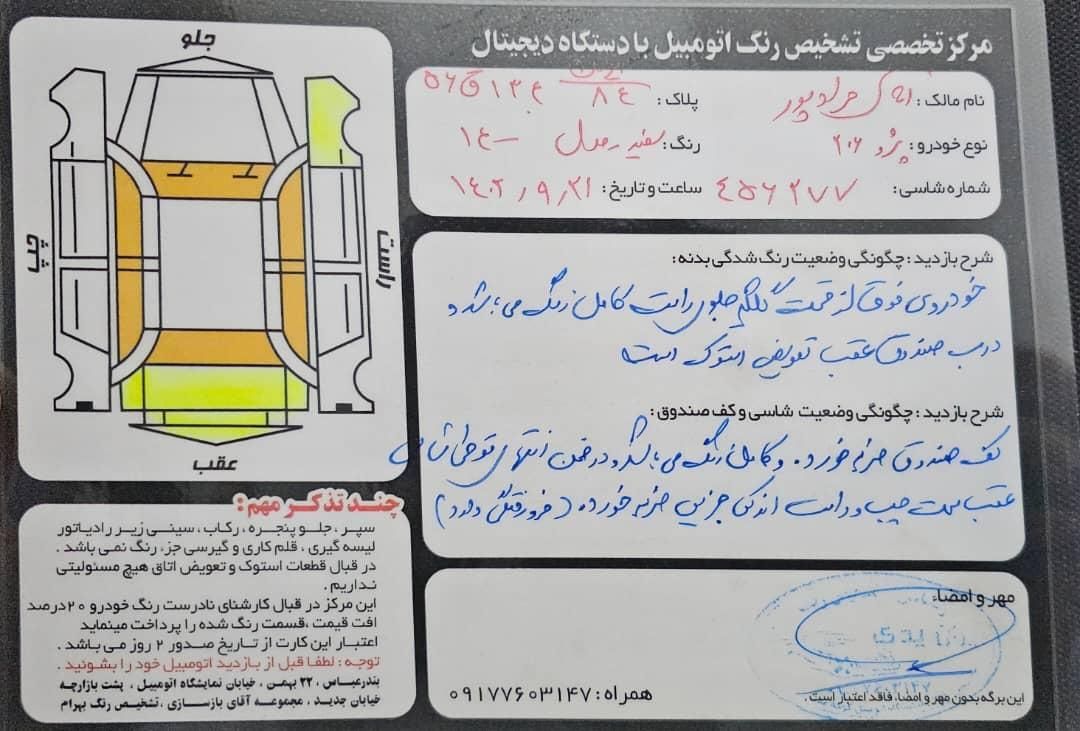 مرکز تخصصی تشخیص رنگ اتومبیل با دستگاه دیجیتال
نام مالک:
پلاک: ۸۴ ۱۳۴ق۵۶
نوع خودرو: پژو ۲۰۶
رنگ: سفید مدل ۱۴۰۰
شماره شاسی: ۴۵۶۲۷۷
ساعت و تاریخ: ۱۴۰۲/۹/۲۱
جلو
چپ
راست
عقب
شرح بازدید: چگونگی وضعیت رنگ شدگی بدنه:
خودروی فوق از قسمت گلگیر جلوی راست کامل رنگ می باشد و
درب صندوق عقب تعویض استوک است
شرح بازدید: چگونگی وضعیت شاسی و کف صندوق:
کف صندوق ضربه خورده و کامل رنگ می باشد و در ضمن انتهای قوطی شاسی
عقب سمت چپ و راست اندکی جزیی ضربه خورده (فرورفتگی دارد)
چند تذکر مهم:
سپر، جلو پنجره، رکاب، سینی زیر رادیاتور
لیسه گیری، قلم کاری و گیرسی جزء رنگ نمی باشد.
در قبال قطعات استوک و تعویض اتاق هیچ مسئولیتی
نداریم.
این مرکز در قبال کارشنای نادرست رنگ خودرو ۲۰درصد
افت قیمت، قسمت رنگ شده را پرداخت مینماید
اعتبار این کارت از تاریخ صدور ۲ روز می باشد.
توجه: لطفا قبل از بازدید اتومبیل خود را بشوئید.
بندرعباس، ۲۲ بهمن، خیابان نمایشگاه اتومبیل، پشت بازارچه
خیابان جدید، مجموعه آقای بازسازی، تشخیص رنگ بهرام
مهر و امضاء:
همراه: ۰۹۱۷۷۶۰۳۱۴۷
این برگه بدون مهر و امضا، فاقد اعتبار است.